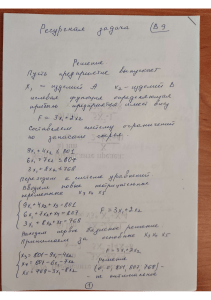 Ресурсная задача
В 9
Решение
Пусть предприятие выпускает
x₁ – изделий Э x₂ – изделий В
целевая функция определяющая
прибыль предприятия имеет вид
F = 3x₁ + 3x₂
Составляем систему ограничений
по запасам сырья.
9x₁ + 4x₂ ≤ 801
6x₁ + 7x₂ ≤ 807
3x₁ + 8x₂ ≤ 768
переходим к системе уравнений
Введем новые
переменные x₃ x₄ x₅
9x₁ + 4x₂ + x₃ = 801
6x₁ + 7x₂ + x₄ = 807
F = 3x₁ + 3x₂
3x₁ + 8x₂ + x₅ = 768
базисное решение
Принимаем за основные x₃ x₄ x₅
x₃ = 801 - 9x₁ - 4x₂
x₄ = 807 - 6x₁ - 7x₂
x₅ = 768 - 3x₁ - 8x₂
F = 3x₁ + 3x₂
решение
(0; 0; 801; 807; 768) –
не оптимально
1